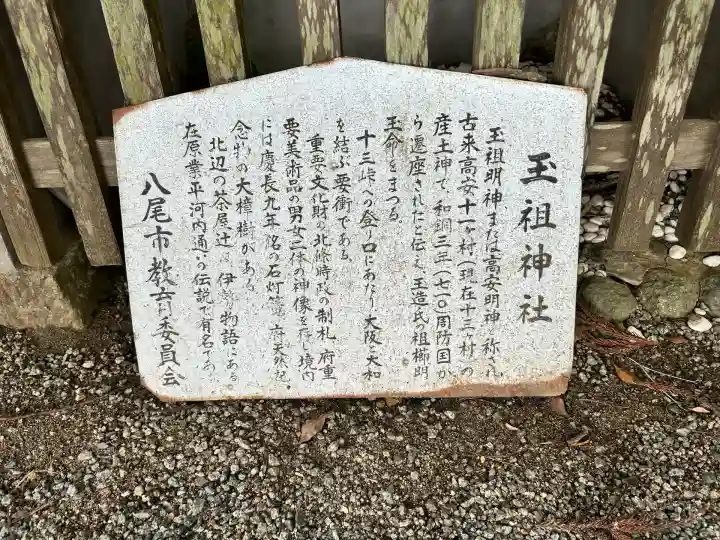 玉祖神社
玉祖明神または高安明神と称され
古来高安十一ヶ村(現在十三村)の
産土神で、和銅三年(七一〇)周防国か
ら遷座されたと伝え、玉造氏の祖櫛明
玉命をまつる。
十三峠への登り口にあたり大阪と大和
を結ぶ要衝である。
重要文化財の北條時政の制札、府重
要美術品の男女二体の神像を存し境内
には慶長九年銘の石灯篭、府天然記
念物の大樟樹がある。
北辺の茶屋辻は伊勢物語にある
在原業平河内通いの伝説で有名である
八尾市教育委員会